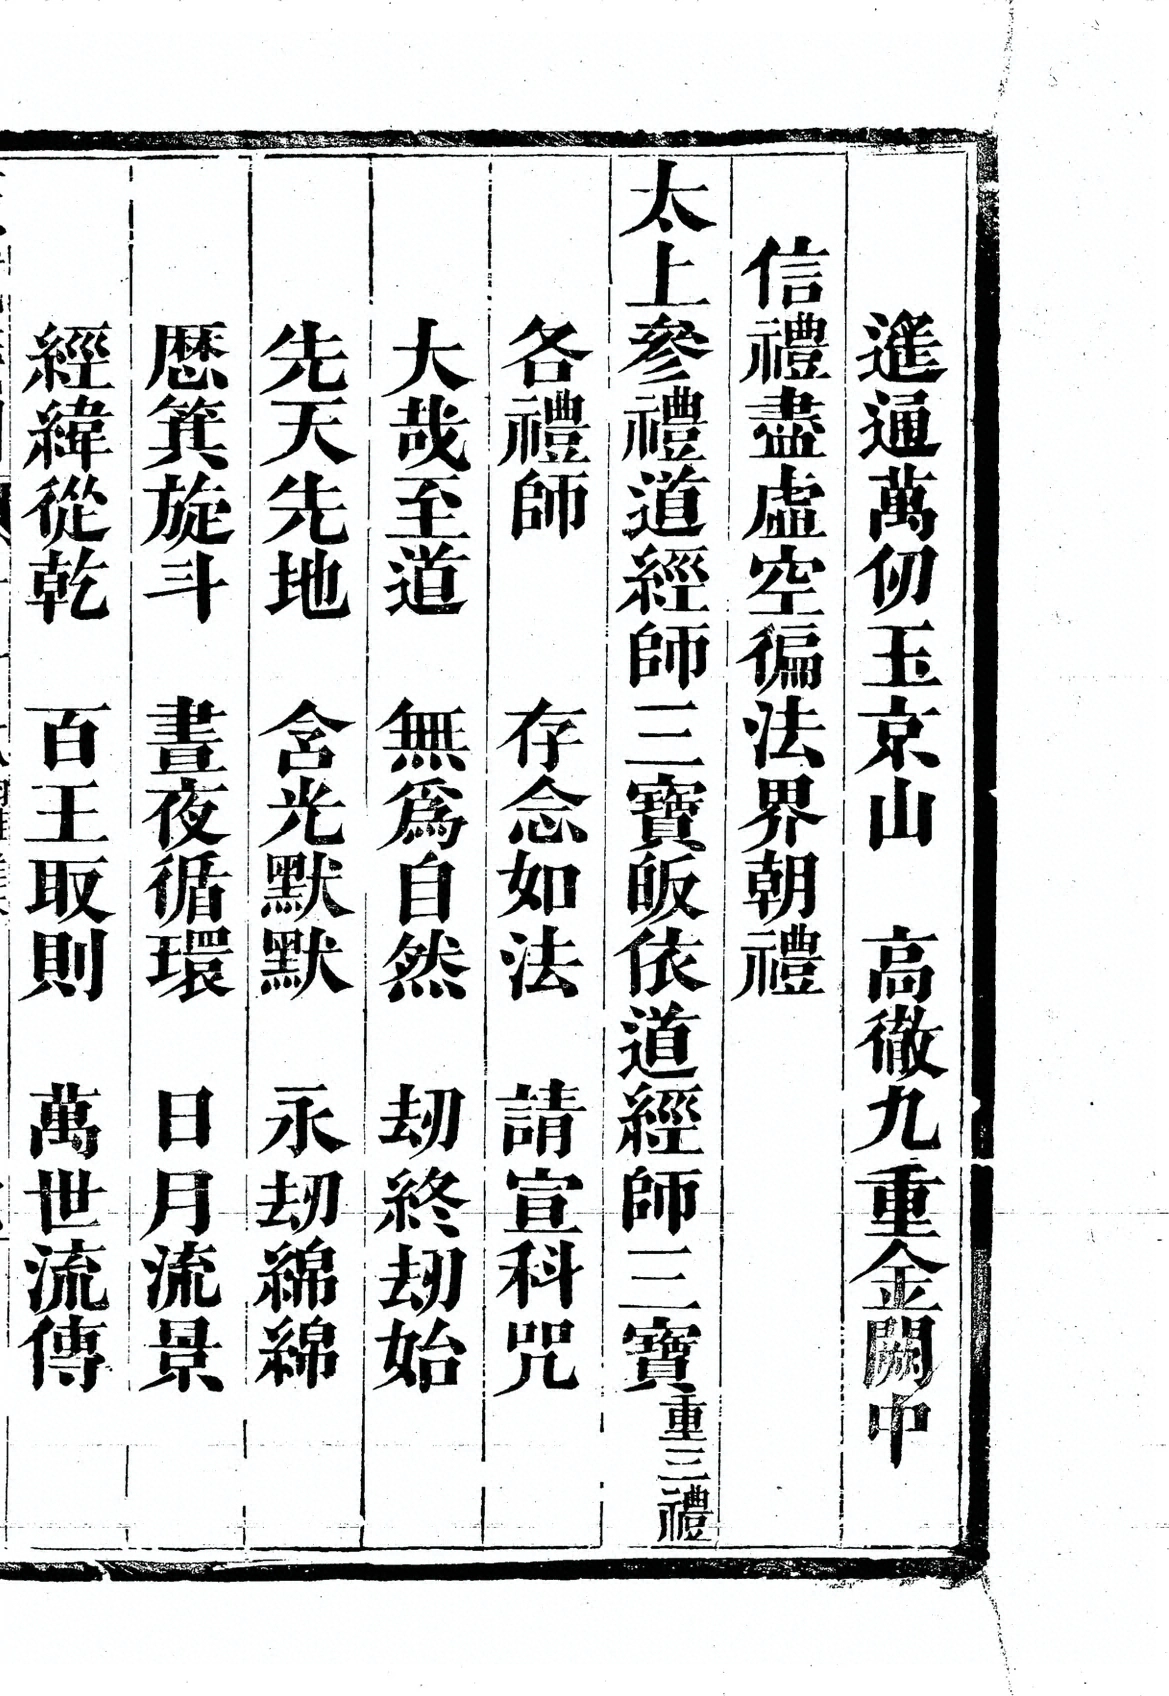 遙通萬仞玉京山　高徹九重金闕中
信禮盡虛空徧法界朝禮
太上參禮道經師三寶皈依道經師三寶重三禮
各禮師　存念如法　請宣科咒
大哉至道　無爲自然　劫終劫始
先天先地　含光默默　永劫綿綿
愿箕旋斗　晝夜循環　日月流景
經緯從乾　百王取則　萬世流傳